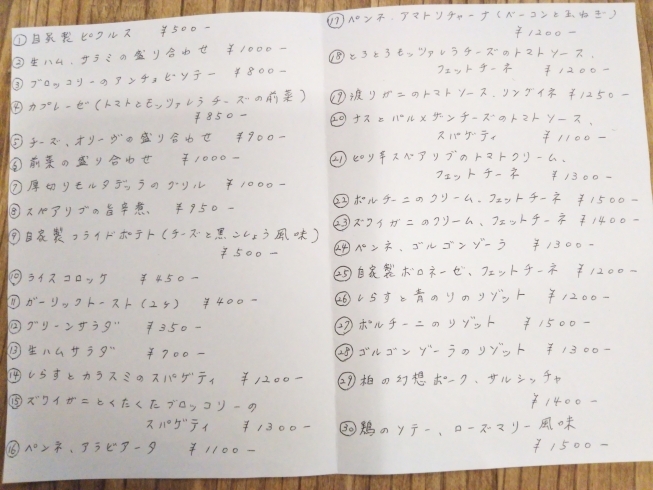 ① 自家製ピクルス ¥500−
② 生ハム、サラミの盛り合わせ ¥1000−
③ ブロッコリーのアンチョビソテー ¥800−
④ カプレーゼ(トマトとモッツァレラチーズの前菜)
¥850−
⑤ チーズ、オリーヴの盛り合わせ ¥900−
⑥ 前菜の盛り合わせ ¥1000−
⑦ 厚切りモルタデッラのグリル ¥1000−
⑧ スペアリブの旨辛煮、 ¥950−
⑨ 自家製フライドポテト(チーズと黒こしょう風味)
¥500−
⑩ ライスコロッケ ¥450−
⑪ ガーリックトースト(2ヶ) ¥400−
⑫ グリーンサラダ ¥350−
⑬ 生ハムサラダ ¥700−
⑭ しらすとカラスミのスパゲティ ¥1200−
⑮ ズワイガニとくたくたブロッコリーの
スパゲティ ¥1300−
⑯ ペンネ、アラビアータ ¥1100−
⑰ ペンネ、アマトリチャーナ(ベーコンと玉ねぎ)
¥1200−
⑱ とろとろモッツァレラチーズのトマトソース、
フェットチーネ ¥1200−
⑲ 渡りガニのトマトソース、リングイネ ¥1250−
⑳ ナスとパルメザンチーズのトマトソース、
スパゲティ ¥1100−
㉑ ピリ辛スペアリブのトマトクリーム、
フェットチーネ ¥1300−
㉒ ポルチーニのクリーム、フェットチーネ ¥1500−
㉓ ズワイガニのクリーム、フェットチーネ ¥1400−
㉔ ペンネ、ゴルゴンゾーラ ¥1300−
㉕ 自家製ボロネーゼ、フェットチーネ ¥1200−
㉖ しらすと青のりのリゾット ¥1200−
㉗ ポルチーニのリゾット ¥1500−
㉘ ゴルゴンゾーラのリゾット ¥1300−
㉙ 柏の幻想ポーク、サルシッチャ
¥1400−
㉚ 鶏のソテー、ローズマリー風味
¥1500−